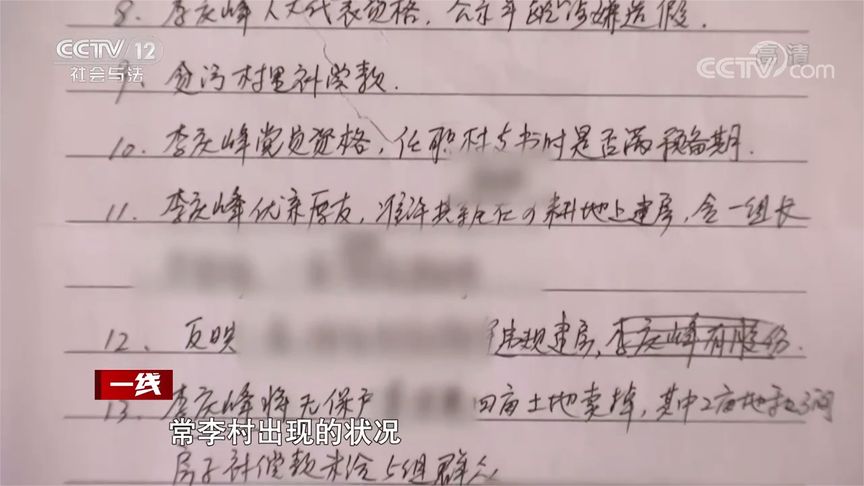 8. 李庆峰人大代表资格，公示年龄涉嫌造假.
CCTV 12
社会与法
高清
CCTV.com
9、贪污村里补偿款.
10. 李庆峰党员资格，任职村支书时是否满预备期.
11. 李庆峰优亲厚友，准许其亲在耕地上建房，含一组长
12、反映
违规建房，李庆峰有股份.
一线
13. 李庆峰将无保户
四亩土地卖掉，其中2亩地和3间
常李村出现的状况
房子补偿款未给5组群众